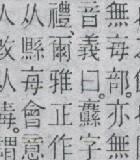 無每部亦無
音義曰。字
禮。爾雅正作
从縣每會意
人改人毒。謂